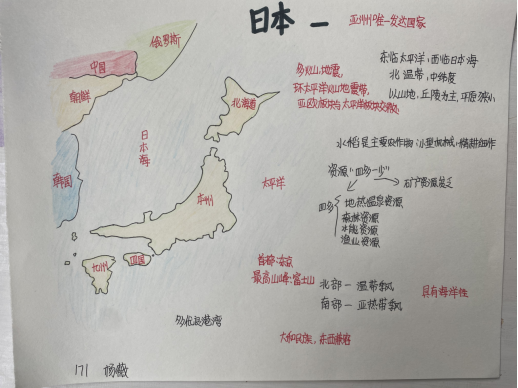 日本 —
亚洲唯一发达国家
俄罗斯
中国
朝鲜
韩国
日本海
北海道
本州
四国
九州
太平洋
多火山、地震,
环太平洋火山地震带,
亚欧板块与太平洋板块交界处
东临太平洋,西临日本海
北温带,中纬度
以山地、丘陵为主,平原狭小
水稻是主要农作物:小型机械,精耕细作
资源“四多一少”
矿产资源贫乏
四多
地热温泉资源
森林资源
水能资源
渔业资源
首都:东京
最高山峰:富士山
北部—温带季风
南部—亚热带季风
具有海洋性
多优良港湾
大和民族,东西兼容
171